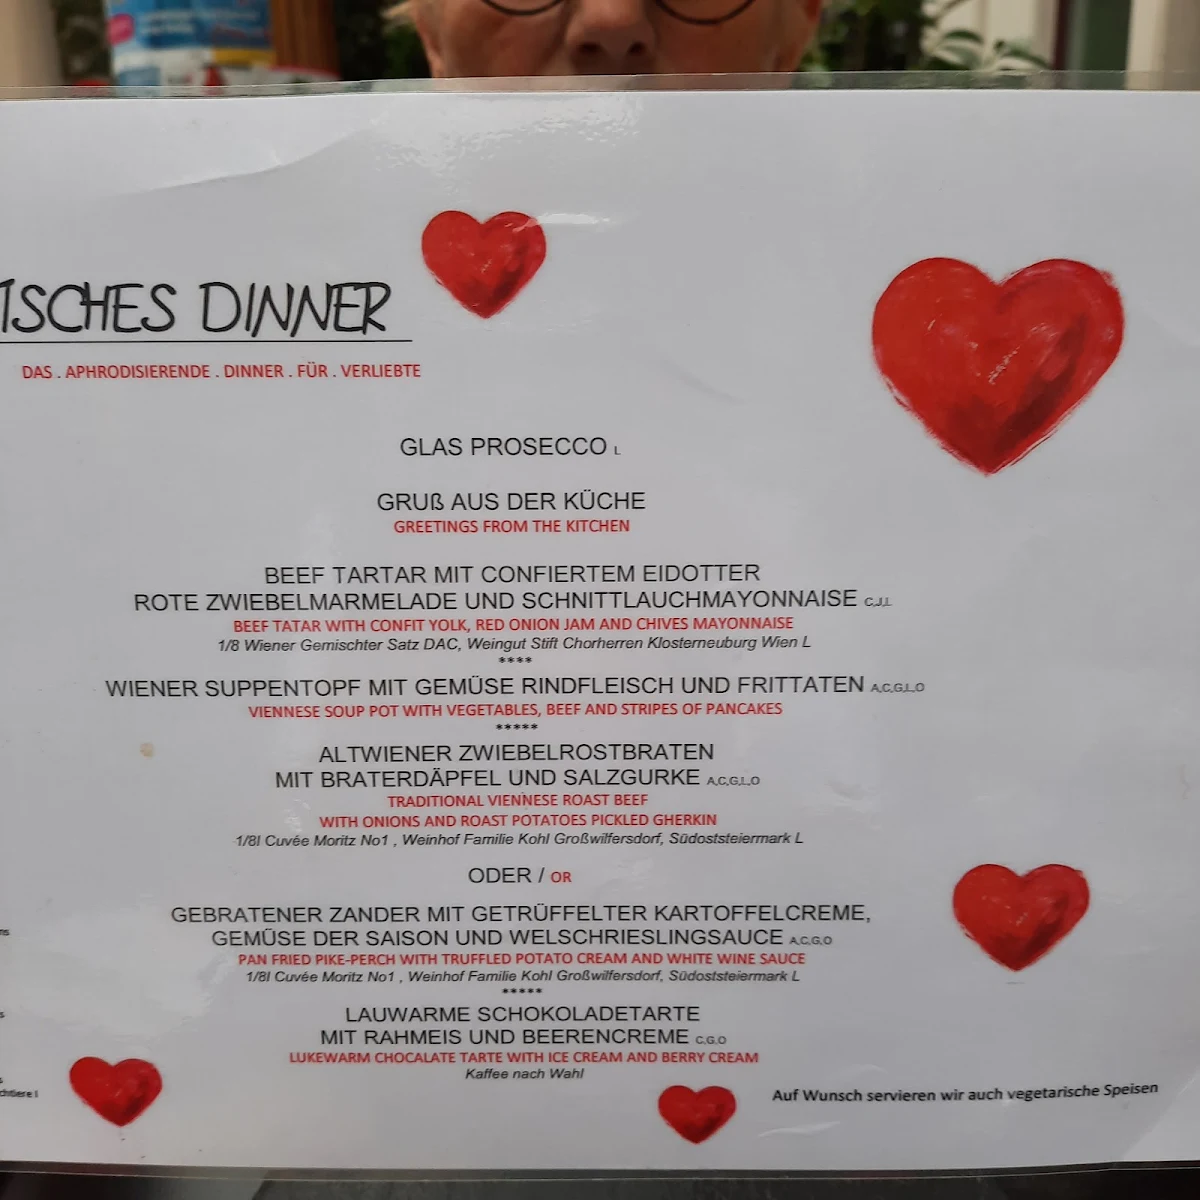 ISCHES DINNER
DAS . APHRODISIERENDE . DINNER . FÜR . VERLIEBTE
GLAS PROSECCO L
GRUß AUS DER KÜCHE
GREETINGS FROM THE KITCHEN
BEEF TARTAR MIT CONFIERTEM EIDOTTER
ROTE ZWIEBELMARMELADE UND SCHNITTLAUCHMAYONNAISE C,J,L
BEEF TATAR WITH CONFIT YOLK, RED ONION JAM AND CHIVES MAYONNAISE
1/8 Wiener Gemischter Satz DAC, Weingut Stift Chorherren Klosterneuburg Wien L
****
WIENER SUPPENTOPF MIT GEMÜSE RINDFLEISCH UND FRITTATEN A,C,G,L,O
VIENNESE SOUP POT WITH VEGETABLES, BEEF AND STRIPES OF PANCAKES
*****
ALTWIENER ZWIEBELROSTBRATEN
MIT BRATERDÄPFEL UND SALZGURKE A,C,G,L,O
TRADITIONAL VIENNESE ROAST BEEF
WITH ONIONS AND ROAST POTATOES PICKLED GHERKIN
1/8l Cuvée Moritz No1 , Weinhof Familie Kohl Großwilfersdorf, Südoststeiermark L
ODER / OR
GEBRATENER ZANDER MIT GETRÜFFELTER KARTOFFELCREME,
GEMÜSE DER SAISON UND WELSCHRIESLINGSAUCE A,C,G,O
PAN FRIED PIKE-PERCH WITH TRUFFLED POTATO CREAM AND WHITE WINE SAUCE
1/8l Cuvée Moritz No1 , Weinhof Familie Kohl Großwilfersdorf, Südoststeiermark L
*****
LAUWARME SCHOKOLADETARTE
MIT RAHMEIS UND BEERENCREME C,G,O
LUKEWARM CHOCALATE TARTE WITH ICE CREAM AND BERRY CREAM
Kaffee nach Wahl
Auf Wunsch servieren wir auch vegetarische Speisen